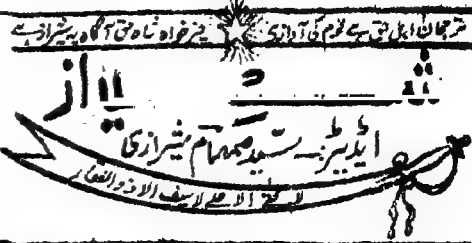 ترجمان اہل حق ہے قوم کی آواز ہے خیر خواہ شاہ حق آگاہ یہ شیراز ہے
شیراز
ایڈیٹر۔ سید صمصام شیرازی
لا فتی الا علی لا سیف الا ذوالفقار